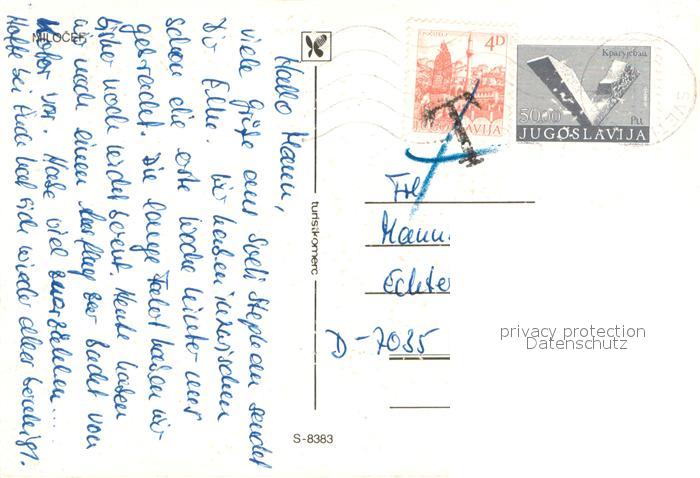 MILOČER
Hallo Mann,
viele Grüße aus Sveti Stephan sendet
Dir Elke. Wir haben inzwischen
schon die erste Woche hinter uns
gebracht. Die lange Fahrt haben wir
bisher noch nicht bereut. Heute haben
wir noch einen Ausflug zur Bucht von
Kotor vor. Habe viel zu erzählen...
Hoffe bei Euch hat sich wieder alles bereinigt.
turistkomerc
S-8383
4D
JUGOSLAVIJA
50.00
JUGOSLAVIJA
T
Frl
Mann
Echter
D-7035
privacy protection
Datenschutz